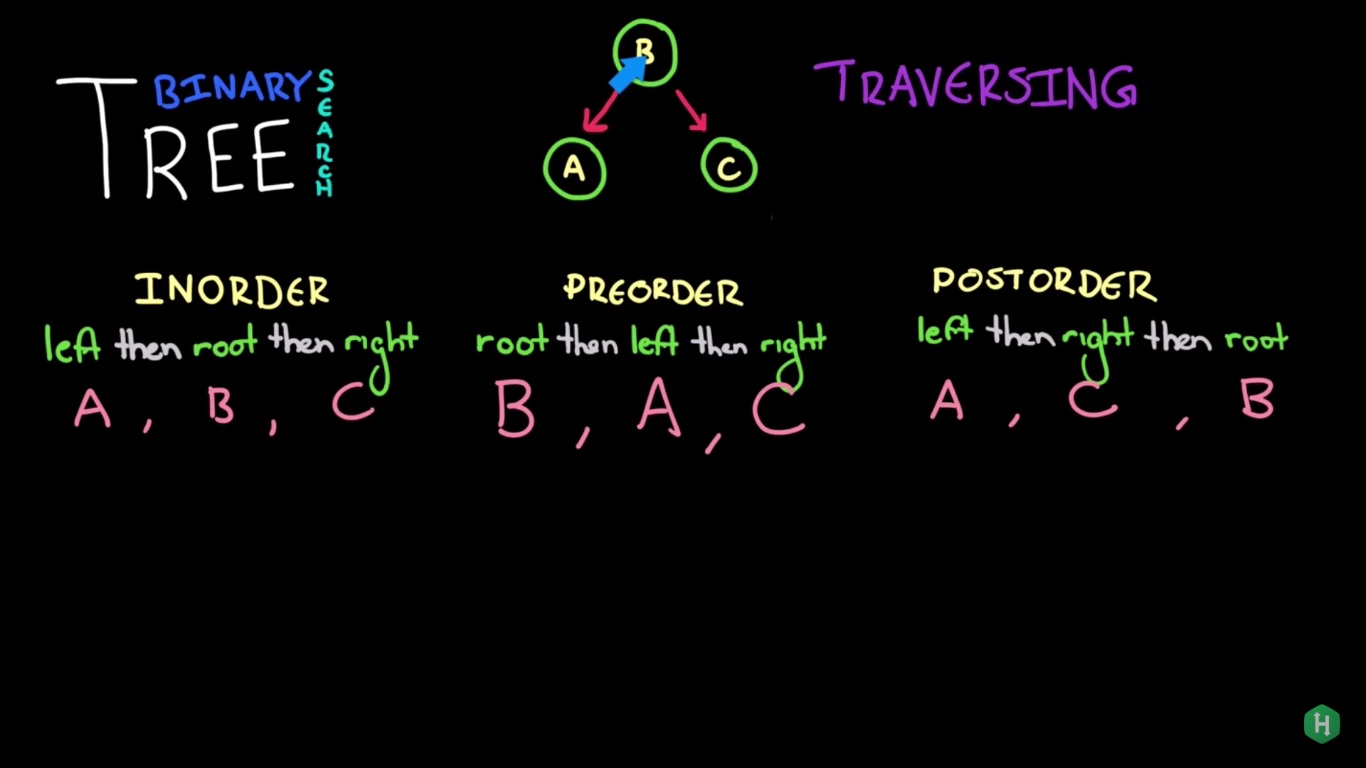 BINARY SEARCH
TREE
B
A C
TRAVERSING
INORDER
left then root then right
A , B , C
PREORDER
root then left then right
B , A , C
POSTORDER
left then right then root
A , C , B
H